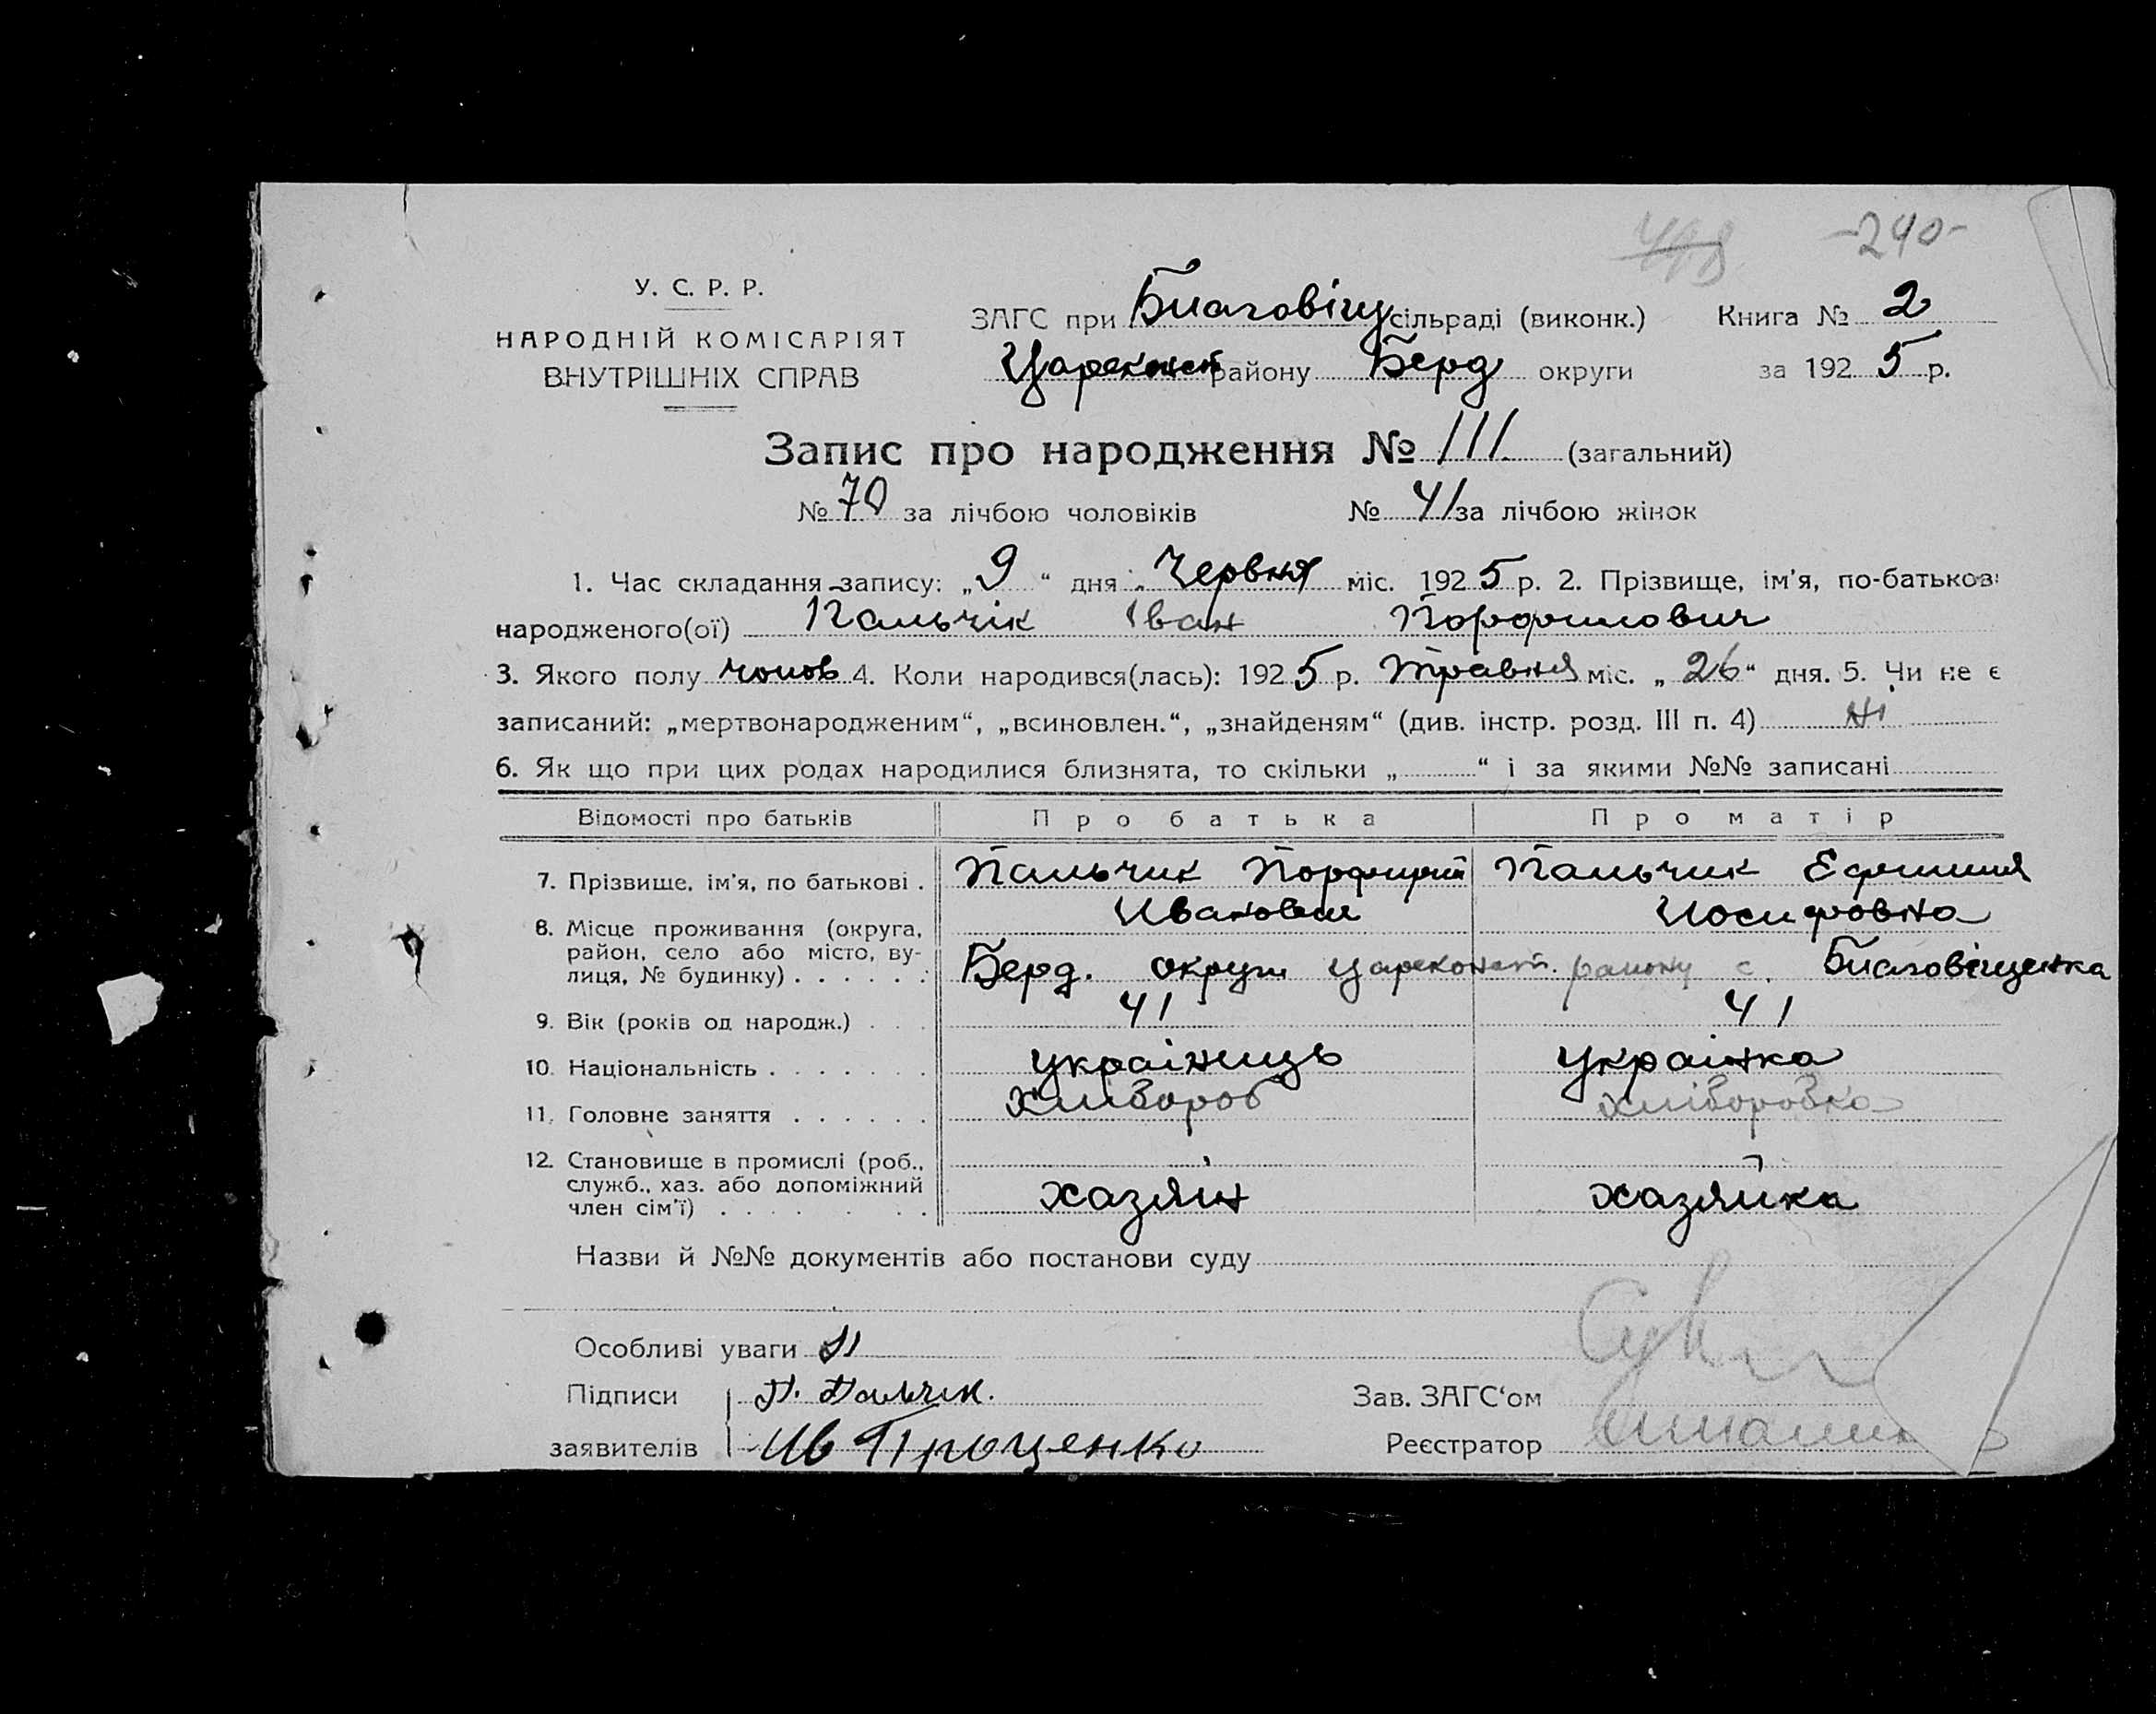 448 -240-
У. С. Р. Р.
НАРОДНІЙ КОМІСАРІЯТ
ВНУТРІШНІХ СПРАВ
ЗАГС при Благовіщ сільраді (виконк.) Книга № 2
Царекконст району Берд округи за 1925 р.
Запис про народження № 111 (загальний)
№ 70 за лічбою чоловіків № 41 за лічбою жінок
1. Час складання запису: „9“ дня „Червня міс. 1925 р. 2. Прізвище, ім'я, по-батькові
народженого(ої) Пальчік Іван Порфилович
3. Якого полу чолов 4. Коли народився(лась): 1925 р. Травня міс. „26“ дня. 5. Чи не є
записаний: „мертвонародженим“, „всиновлен.“, „знайденям“ (див. інстр. розд. III п. 4) Ні
6. Як що при цих родах народилися близнята, то скільки „ “ і за якими №№ записані
Відомості про батьків Про батька Про матір
7. Прізвище, ім'я, по батькові . Пальчик Порфирій Пальчик Ефимия
Иванович Иосифовна
8. Місце проживання (округа,
район, село або місто, ву-
лиця, № будинку) . . . . . . Берд. округи Цареконст. району с. Благовіщенка
9. Вік (років од народж.) . . . 41 41
10. Національність . . . . . . . україниць українка
11. Головне заняття . . . . . . Хлібороб хліборобка
12. Становище в промислі (роб.,
служб., хаз. або допоміжний
член сім'ї) . . . . . . . . хазяін хазяйка
Назви й №№ документів або постанови суду
Особливі уваги
Підписи П. Пальчік. Зав. ЗАГС‘ом
заявителів Ив Проценко Реєстратор